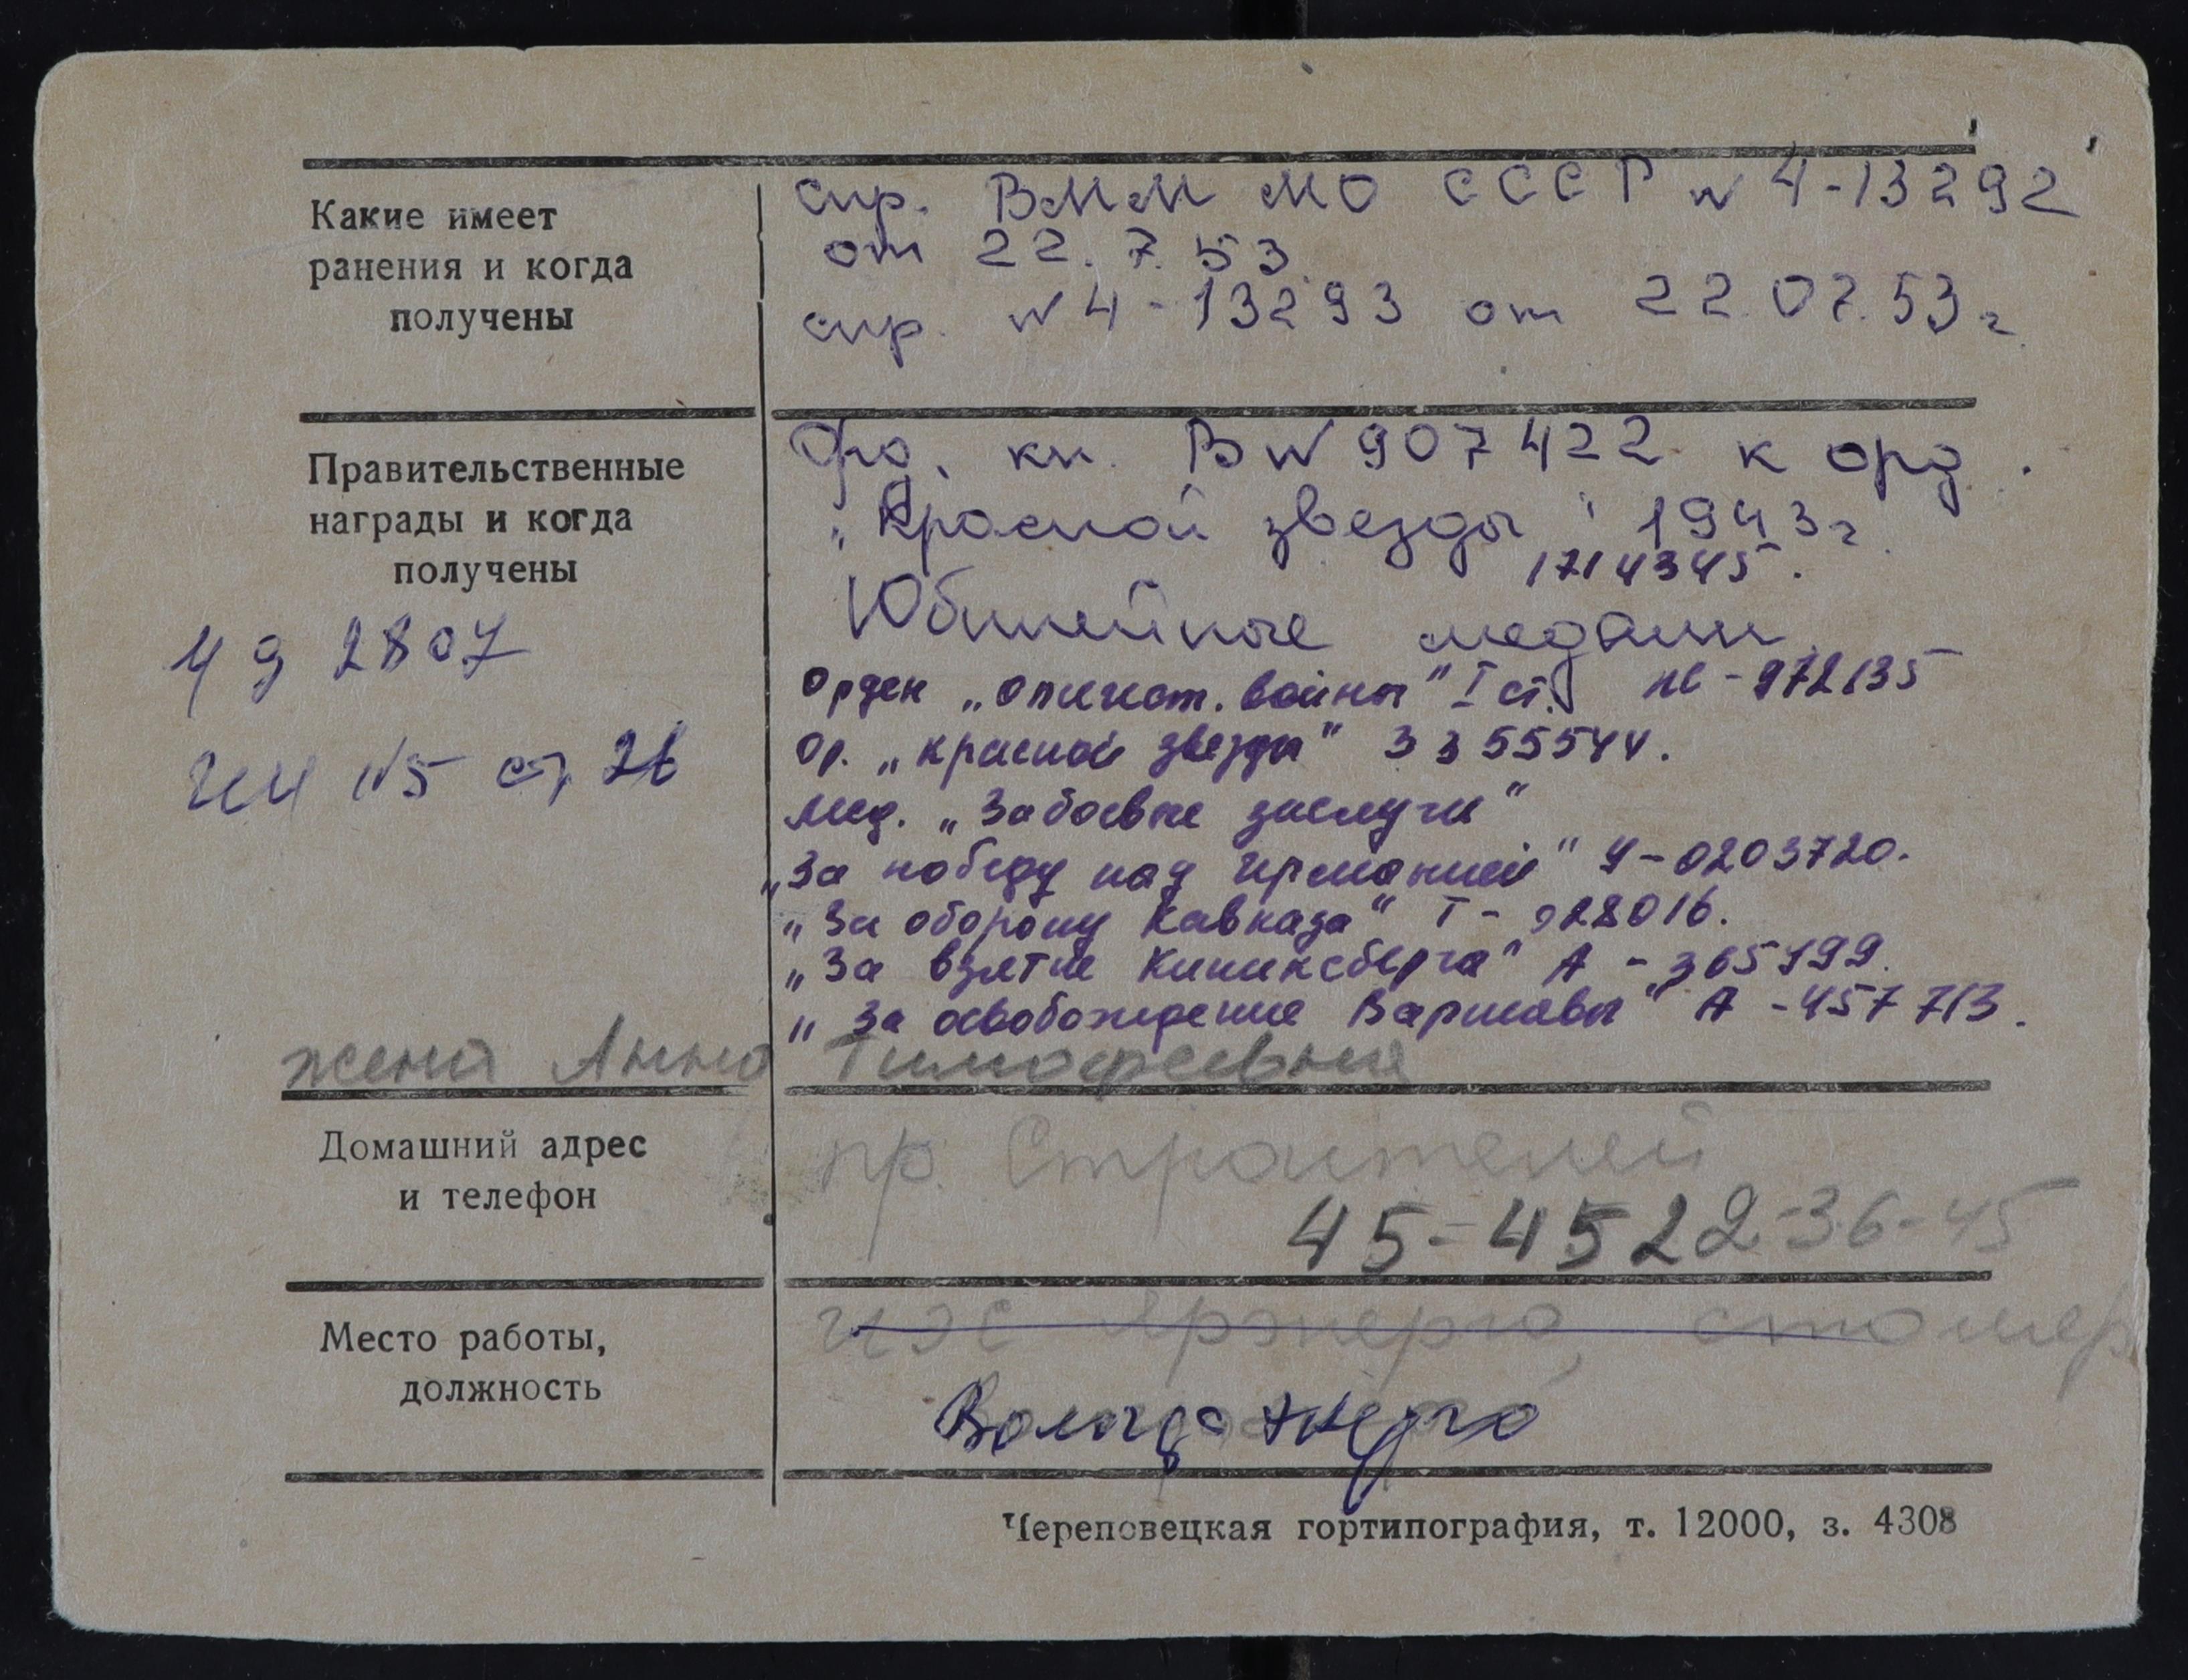 Какие имеет
ранения и когда
получены
спр. ВММ МО СССР N 4-13292
от 22.7.53
спр. N 4-13293 от 22.07.53г.
Правительственные
награды и когда
получены
Орд. кн. В N 907422 к орд.
„Красной звезды" 1943г.
1714345.
Юбилейные медали.
Орден „отечест. войны" I ст. № - 972135
Ор. „красной звезды" 3355544.
мед. „За боевые заслуги"
„За победу над Германией" У-0203720.
„За оборону Кавказа" Т - 928016.
„За взятие Кинигсберга" А - 365199.
„За освобождение Варшавы" А - 457713.
4 д 2807
ИЧ N5 ст 26
жена Анна Тимофеевна
Домашний адрес
и телефон
пр. Строителей
45-45 22-36-45
Место работы,
должность
Вологдаэнерго
Череповецкая гортипография, т. 12000, з. 4308